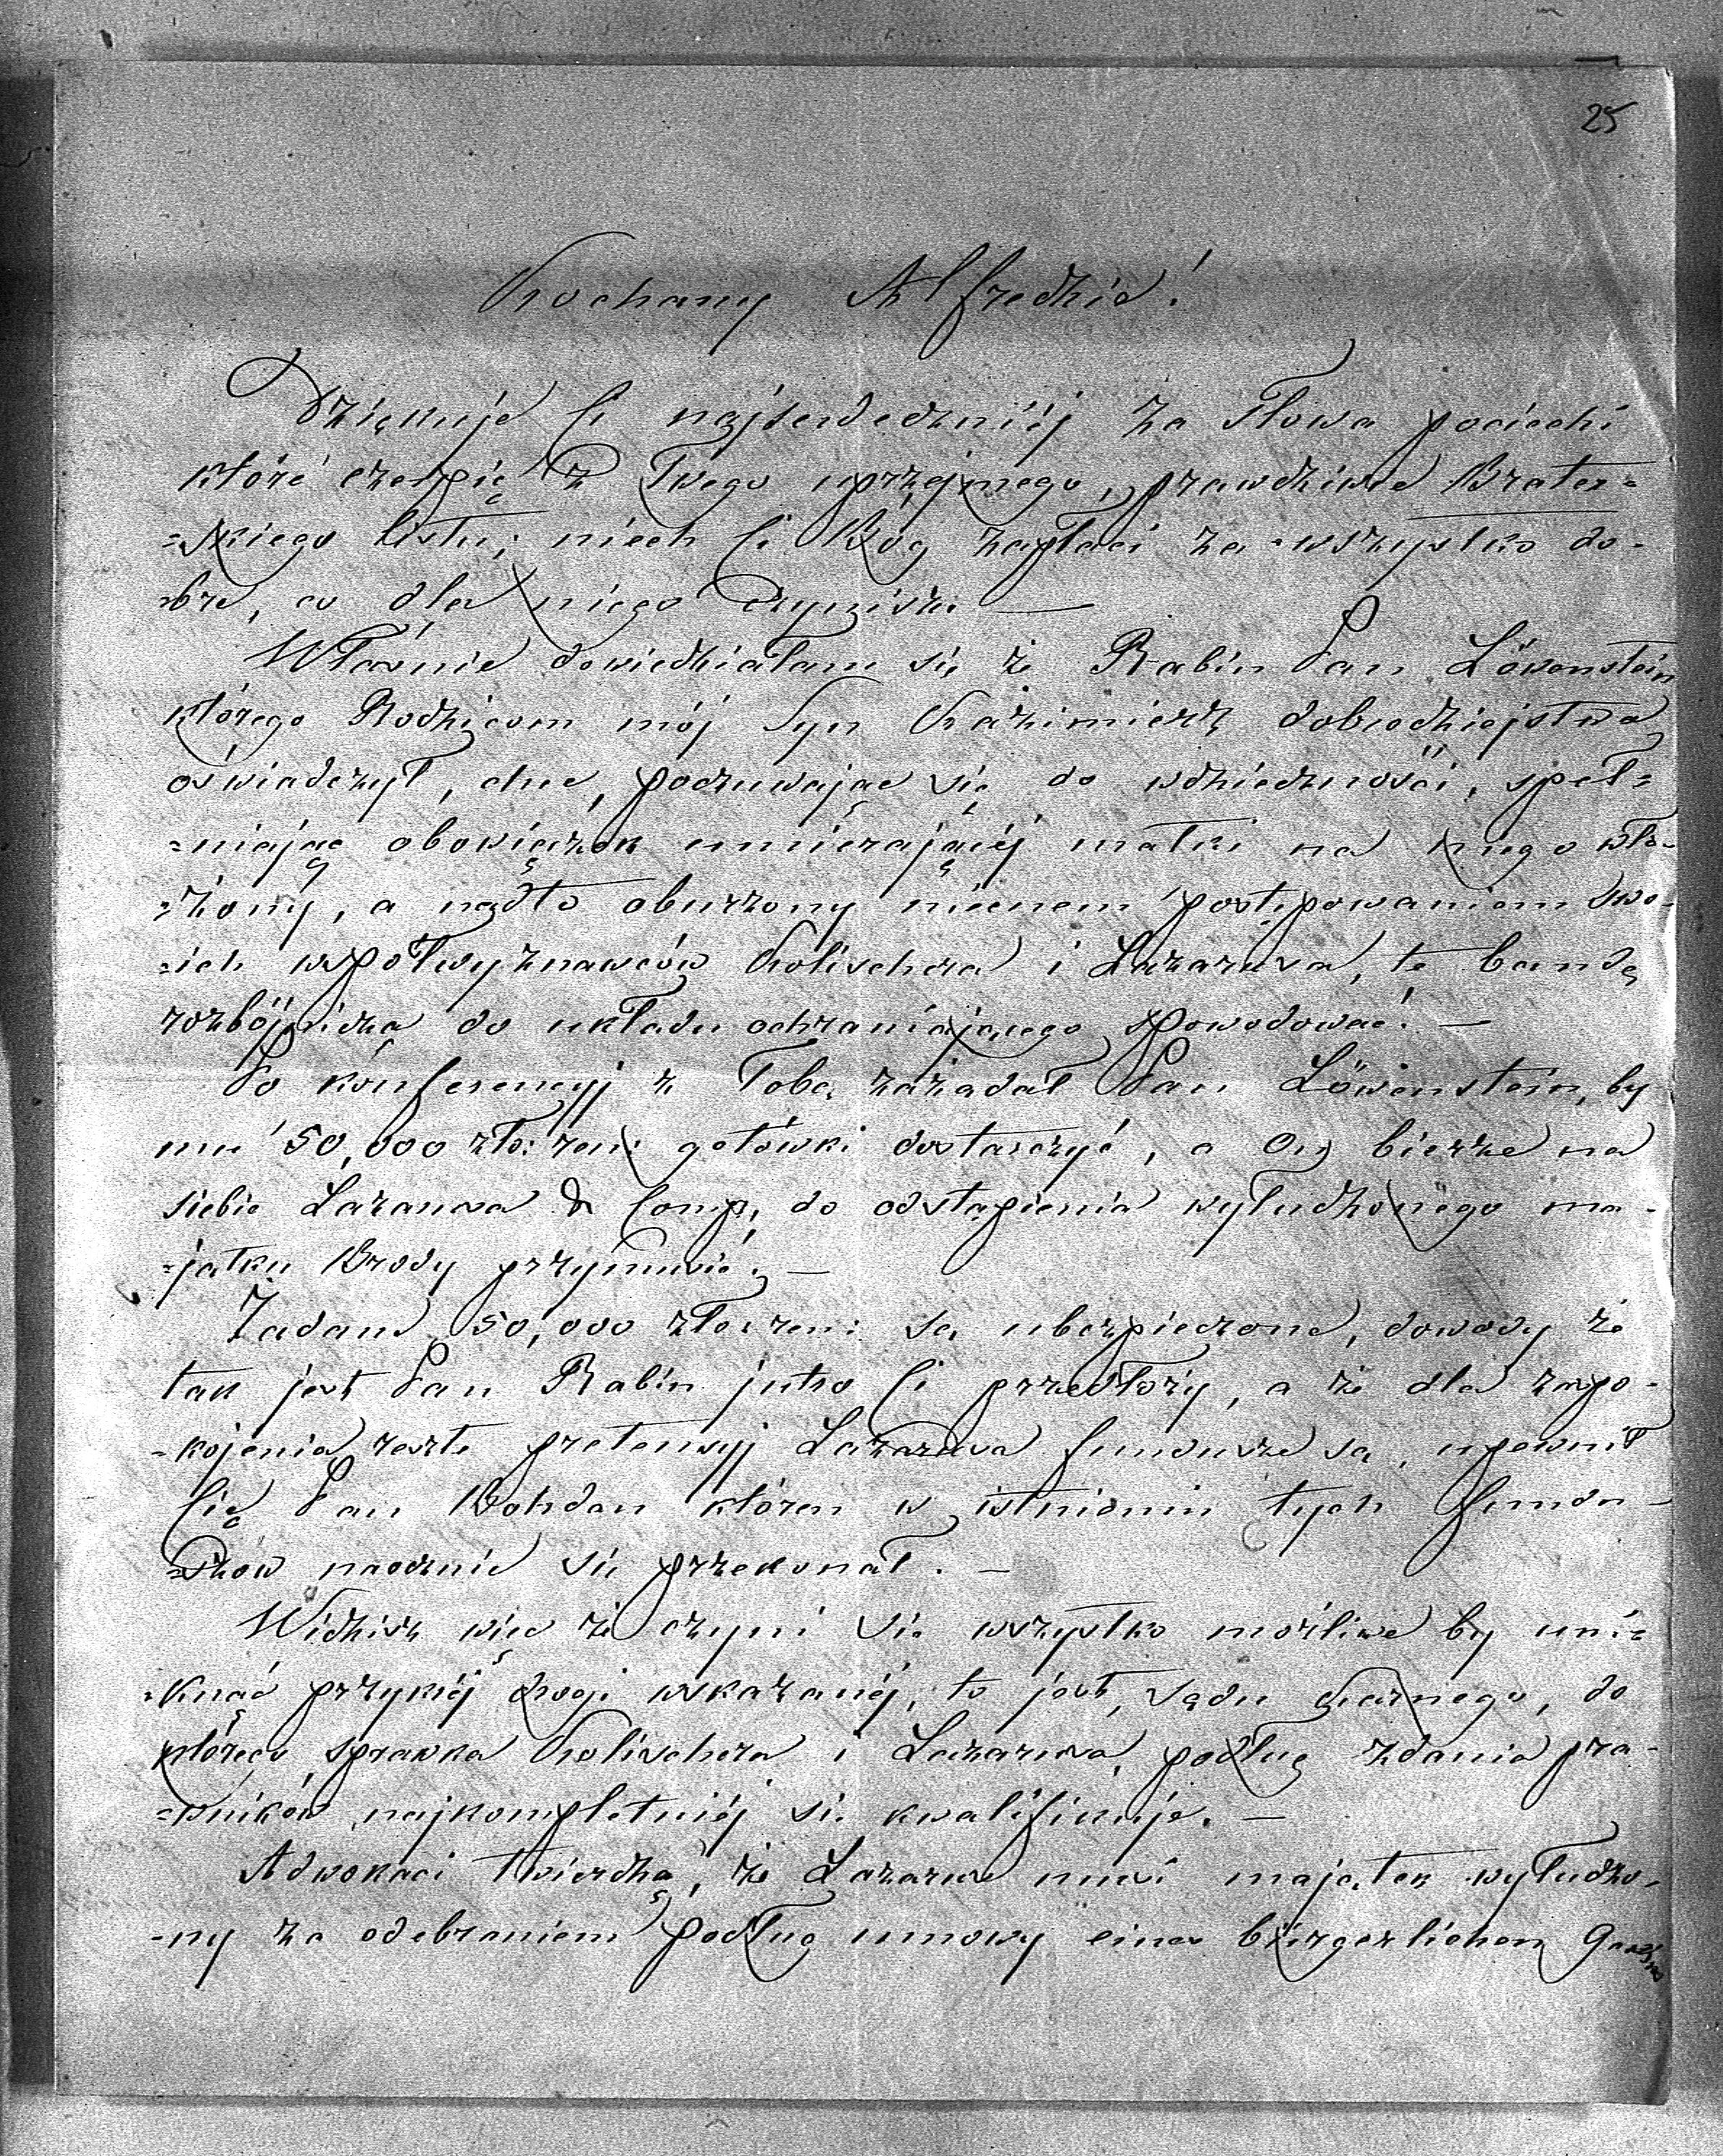 25
Kochany Alfredzie!
Dziękuje Ci najserdeczniéj za słowa pociechi
które czerpię z Twego uprzejmego, prawdziwie Brater=
=skiego listu; niech Ci Bóg zapłaci za wszystko do-
-bre, co dla niego czynisz. —
Właśnie dowiedziałam się że Rabin Pan Löwenstein
którego Rodzicom mój Syn Kazimierz dobrodziejstwa
oświadczył, chce, poczuwając się do wdzieczności, speł=
=niając obowiązek umierającéj matki na niego wło-
=żony, a nadto oburzony niecnem postępowaniem swo-
-ich współwyznawców Kolischera i Lazarusa, te bandę
rozbójniczą do układu ochraniającego spowodować. —
Po konferencyj z Tobą zażadał Pan Löwenstein, by
mu 50,000 zło: ren: gotówki dostarczyć, a On bierze na
siebie Lazarusa & Comp, do odstąpienia wyłudzonego ma-
=jątku Brody przymusić. —
Żadane 50,000 zło: ren: są ubezpieczone, dowody że
tak jest Pan Rabin jutro Ci przedłoży, a że dla zaspo-
-kojenia reszte pretensyj Lazarusa fundusze są, upewnił
Cię Pan Bohdan któren w istnieniu tych fundu-
=szów naocznie się przekonał. —
Widzisz więc że czyni się wszystko możliwe by uni=
=knąć przykréj drogi wskazanéj, to jest, sądu karnego, do
którego sprawka Kolischera i Lazarusa, podług zdania pra-
=wników najkompletniéj się kwalifikuje. —
Adwokaci twierdzą, że Lazarus musi majątek wyłudzo-
-ny za odebraniem podług umowy eines bürgerlichen